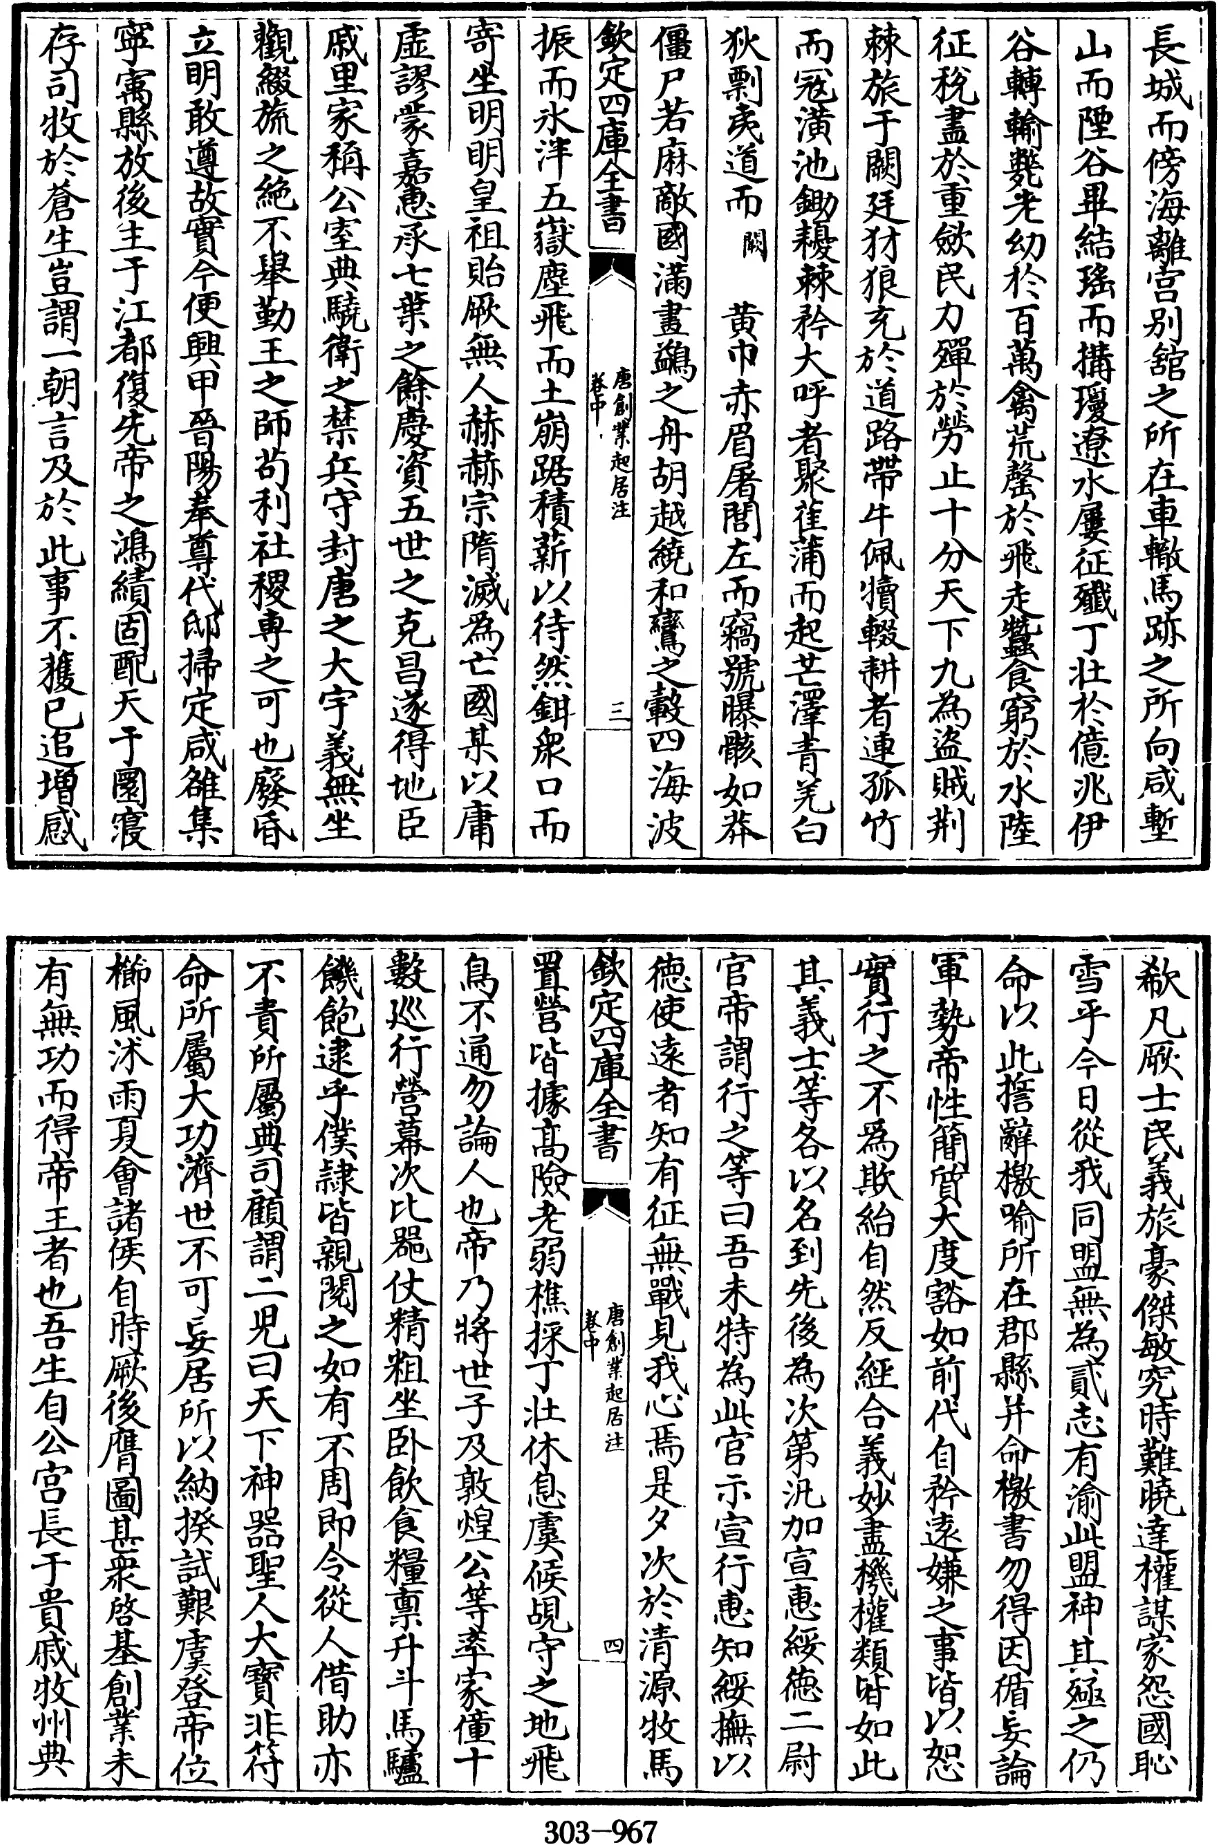 長城而傍海離宫别舘之所在車轍馬跡之所向咸塹
山而陻谷畢結瑶而搆瓊遼水屢征殱丁壯於億兆伊
谷轉輸斃老幼於百萬禽荒罄於飛走蠶食窮於水陸
征稅盡於重斂民力殫於勞止十分天下九為盜賊荆
棘旅于闕廷豺狼充於道路帶牛佩犢輟耕者連孤竹
而冦潢池鋤耰棘矜大呼者聚萑蒲而起芒澤青羌白
狄剽夷道而闕　黄巾赤眉屠閭左而竊號曝骸如莽
僵尸若麻敵國滿畫鷁之舟胡越繞和鸞之轂四海波
欽定四庫全書
唐創業起居注
卷中
三
振而氷泮五嶽塵飛而土崩踞積薪以待然鉗衆口而
寄坐明明皇祖貽厥無人赫赫宗隋滅為亡國某以庸
虚謬蒙嘉惠承七葉之餘慶資五世之克昌遂得地臣
戚里家稱公室典驍衛之禁兵守封唐之大宇義無坐
觀綴旒之絶不舉勤王之師苟利社稷專之可也廢昏
立明敢遵故實今便興甲晉陽奉尊代邸掃定咸雒集
寧寓縣放後主于江都復先帝之鴻績固配天于圜寢
存司牧於蒼生豈謂一朝言及於此事不獲已追增感
欷凡厥士民義旅豪傑敏究時難曉達權謀家怨國恥
雪乎今日從我同盟無為貳志有渝此盟神其殛之仍
命以此誓辭檄喻所在郡縣并命檄書勿得因循妄論
軍勢帝性簡質大度豁如前代自矜遠嫌之事皆以恕
實行之不為欺紿自然反經合義妙盡機權類皆如此
其義士等各以名到先後為次第汎加宣惠綏德二尉
官帝謂行之等曰吾未特為此官示宣行惠知綏撫以
德使遠者知有征無戰見我心焉是夕次於清源牧馬
欽定四庫全書
唐創業起居注
卷中
四
置營皆據髙險老弱樵採丁壯休息虞候覘守之地飛
鳥不通勿論人也帝乃將世子及敦煌公等率家僮十
數巡行營幕次比器仗精粗坐卧飲食糧禀升斗馬驢
饑飽逮乎僕隷皆親閱之如有不周即令從人借助亦
不責所屬典司顧謂二児曰天下神器聖人大寶非符
命所屬大功濟世不可妄居所以納揆試艱虞登帝位
櫛風沭雨夏會諸侯自時厥後膺圖甚衆啓基創業未
有無功而得帝王者也吾生自公宫長于貴戚牧州典
303-967